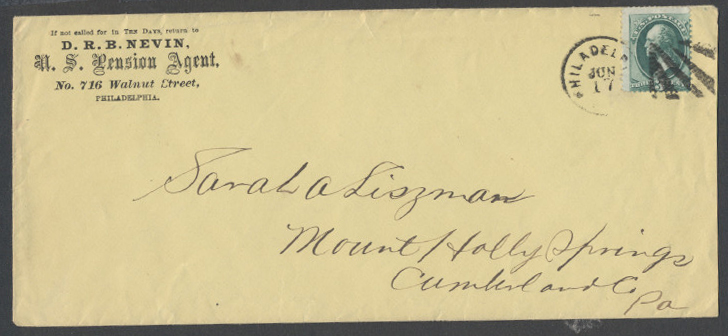 If not called for in TEN DAYS, return to
D. R. B. NEVIN,
U. S. Pension Agent,
No. 716 Walnut Street,
PHILADELPHIA.
PHILADELP
JUN
17
U.S. POSTAGE
Sarah A Liszman
Mount Holly Springs
Cumberland Co
Pa